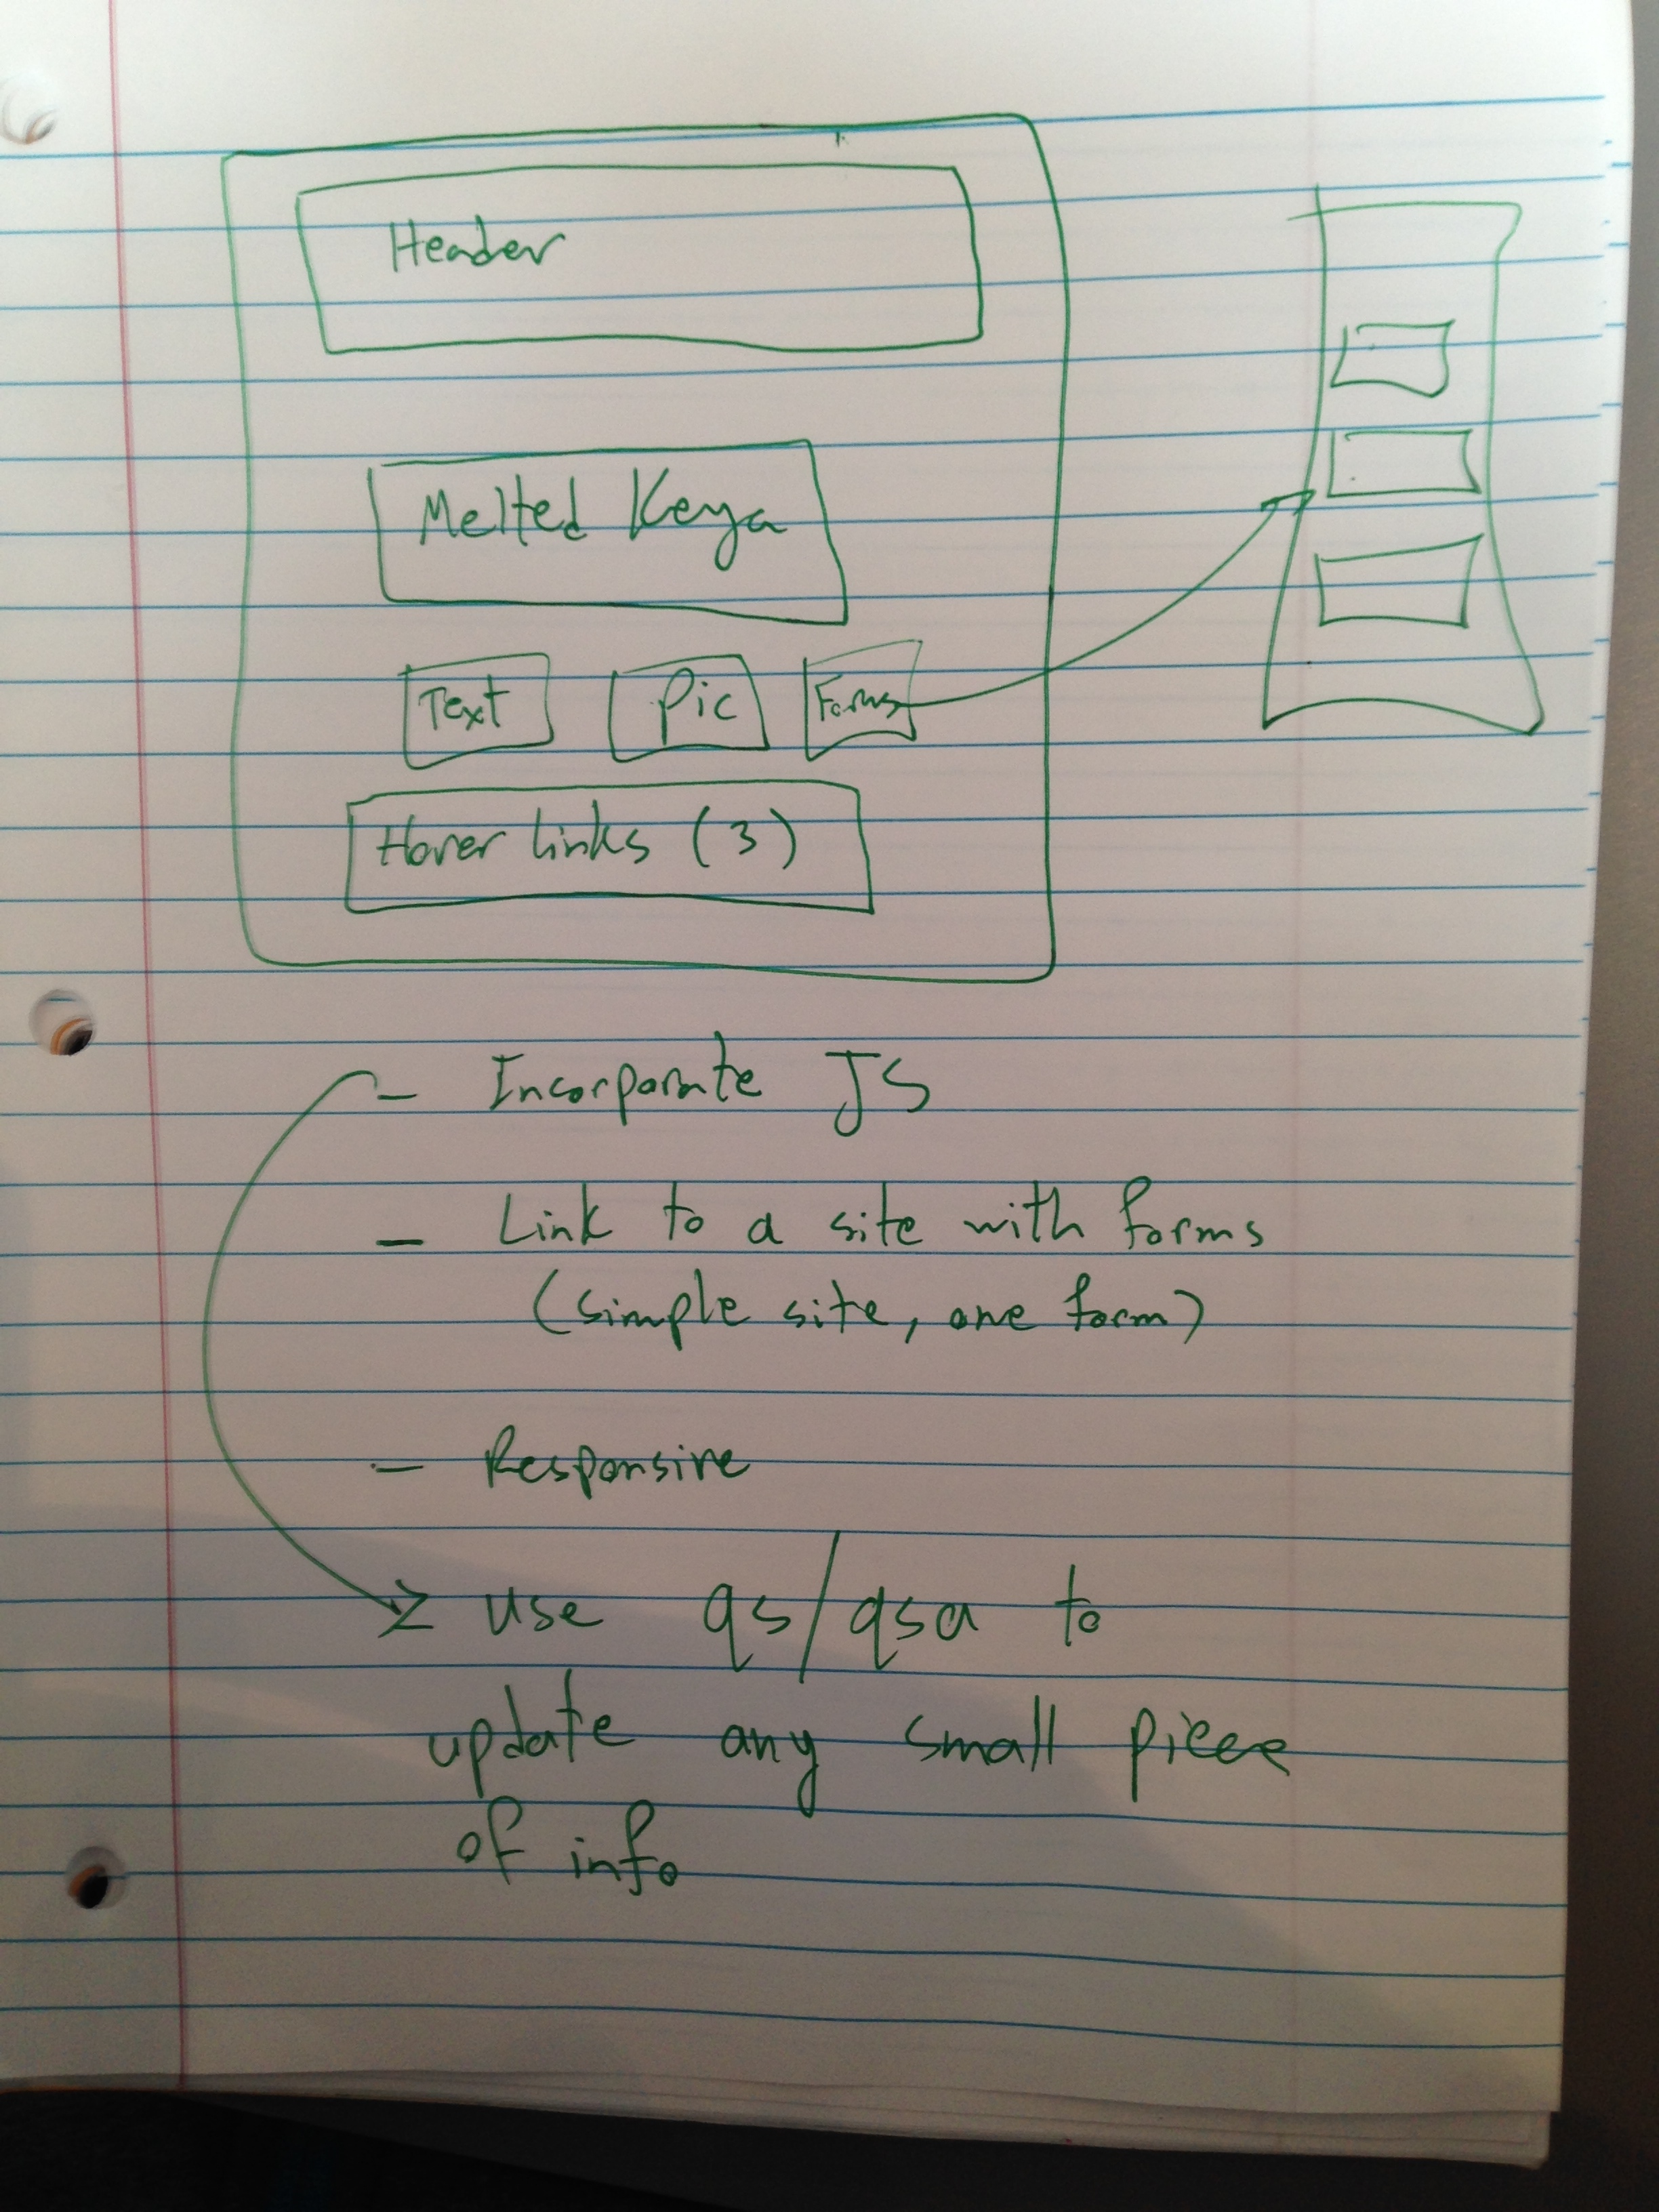 Header
Melted Keya
Text Pic Forms
Hover links (3)
- Incorporate JS
- Link to a site with forms
(simple site, one form)
- Responsive
use qs/qsa to
update any small piece
of info